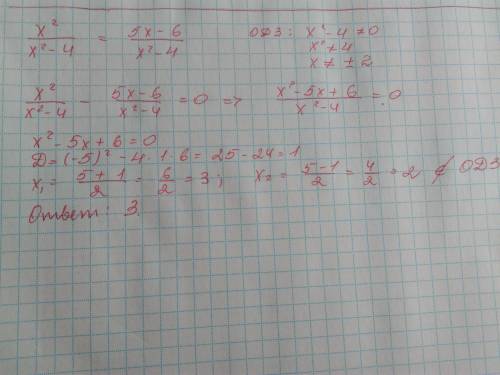 x²/(x²-4) = (5x-6)/(x²-4) ОДЗ: x²-4≠0
x²≠4
x≠±2
x²/(x²-4) - (5x-6)/(x²-4) = 0 => (x²-5x+6)/(x²-4) = 0
x²-5x+6=0
D=(-5)²-4·1·6=25-24=1
x₁= (5+1)/2 = 6/2 = 3; x₂= (5-1)/2 = 4/2 = 2 ∉ ОДЗ
Ответ: 3.